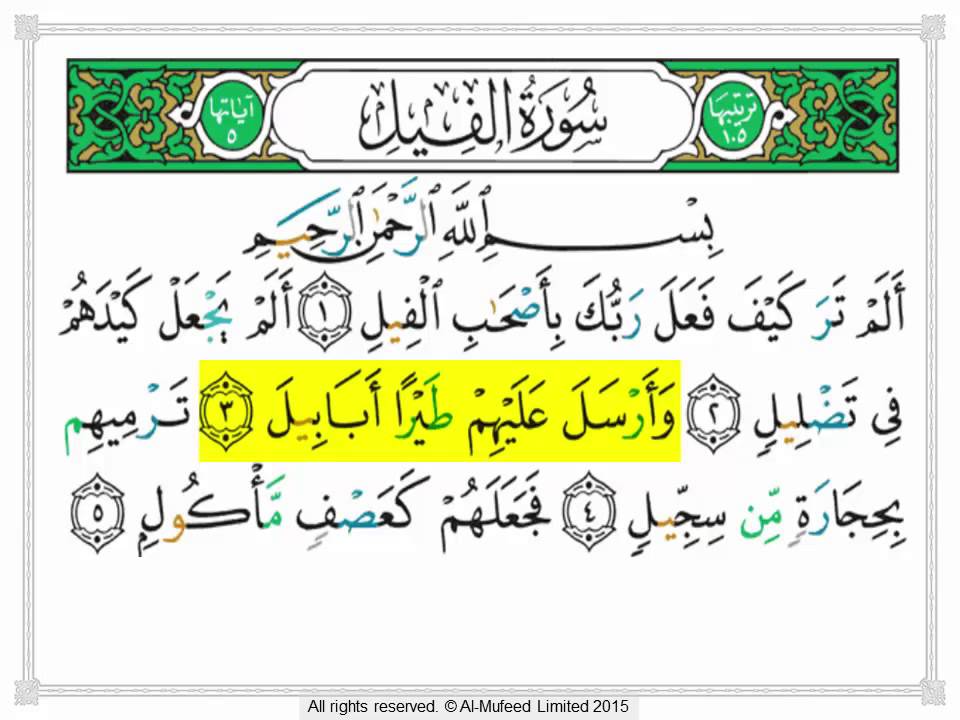 ترتيبها ١٠٥
سُورَةُ الْفِيلِ
آياتها ٥
بِسْمِ ٱللَّهِ ٱلرَّحْمَٰنِ ٱلرَّحِيمِ
أَلَمْ تَرَ كَيْفَ فَعَلَ رَبُّكَ بِأَصْحَٰبِ ٱلْفِيلِ ١ أَلَمْ يَجْعَلْ كَيْدَهُمْ
فِى تَضْلِيلٍ ٢ وَأَرْسَلَ عَلَيْهِمْ طَيْرًا أَبَابِيلَ ٣ تَرْمِيهِم
بِحِجَارَةٍ مِّن سِجِّيلٍ ٤ فَجَعَلَهُمْ كَعَصْفٍ مَّأْكُولٍ ٥
All rights reserved. © Al-Mufeed Limited 2015